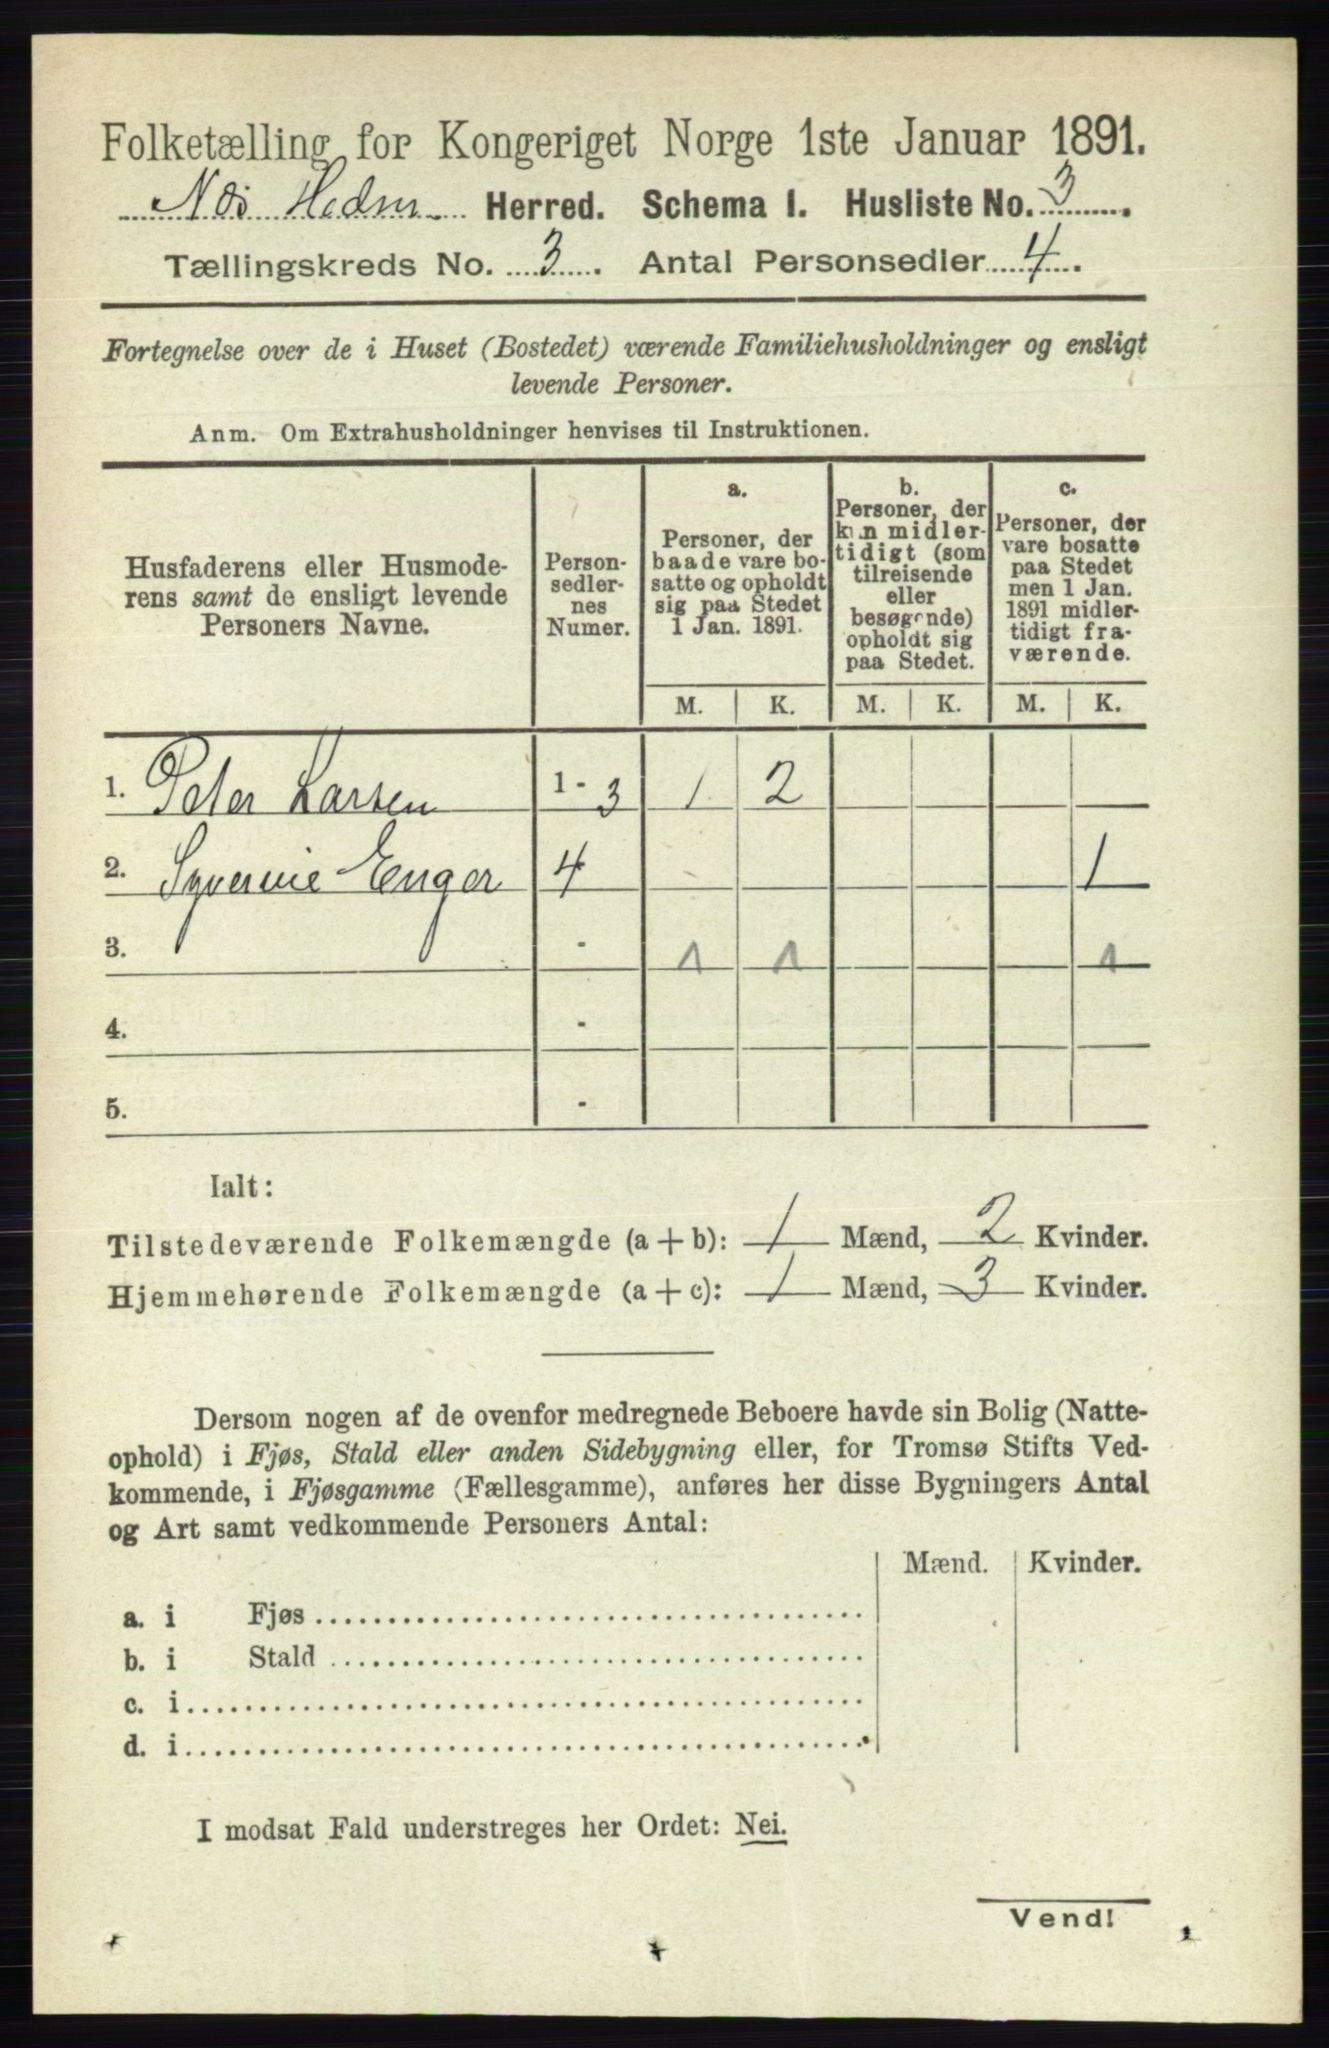 Folketælling for Kongeriget Norge 1ste Januar 1891.
Næs Hedm. Herred. Schema I. Husliste No. 3.
Tællingskreds No. 3. Antal Personsedler 4.
Fortegnelse over de i Huset (Bostedet) værende Familiehusholdninger og ensligt
levende Personer.
Anm. Om Extrahusholdninger henvises til Instruktionen.
Husfaderens eller Husmode-
rens samt de ensligt levende
Personers Navne.
Person-
sedler-
nes
Numer.
a.
Personer, der
baade vare bo-
satte og opholdt
sig paa Stedet
1 Jan. 1891.
b.
Personer, der
kun midler-
tidigt (som
tilreisende
eller
besøgende)
opholdt sig
paa Stedet.
c.
Personer, der
vare bosatte
paa Stedet
men 1 Jan.
1891 midler-
tidigt fra-
værende.
M. K. M. K. M. K.
1. Peter Larsen 1 - 3 1 2
2. Syverine Enger 4 1
3. - 1 1 1
4. -
5. -
Ialt:
Tilstedeværende Folkemængde (a + b): 1 Mænd, 2 Kvinder.
Hjemmehørende Folkemængde (a + c): 1 Mænd, 3 Kvinder.
Dersom nogen af de ovenfor medregnede Beboere havde sin Bolig (Natte-
ophold) i Fjøs, Stald eller anden Sidebygning eller, for Tromsø Stifts Ved-
kommende, i Fjøsgamme (Fællesgamme), anføres her disse Bygningers Antal
og Art samt vedkommende Personers Antal:
Mænd. Kvinder.
a. i Fjøs
b. i Stald
c. i
d. i
I modsat Fald understreges her Ordet: Nei.
Vend!